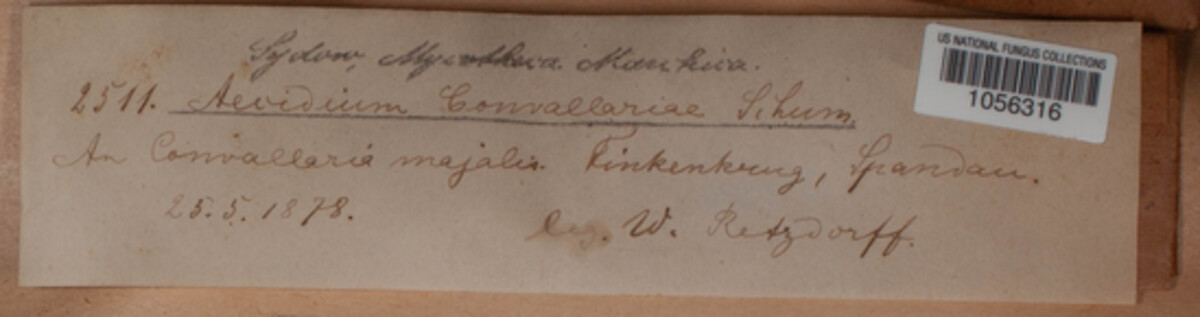 Sydow, Mycotheca Marchica.
2511. Aecidium Convallariae Schum.
An Convallaria majalis. Finkenkrug, Spandau.
25.5.1878. leg. W. Retzdorff.
US NATIONAL FUNGUS COLLECTIONS
1056316